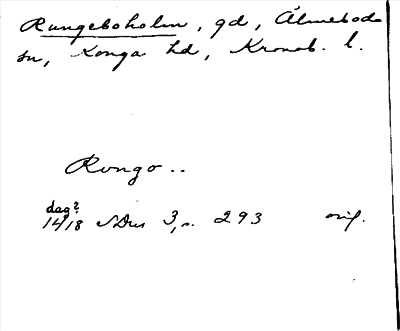 Rungeboholm, gd, Älmeboda
sn, Konga hd, Kronob. l.
Rongo..
dag?
1418 SDns 3, s. 293 orig.